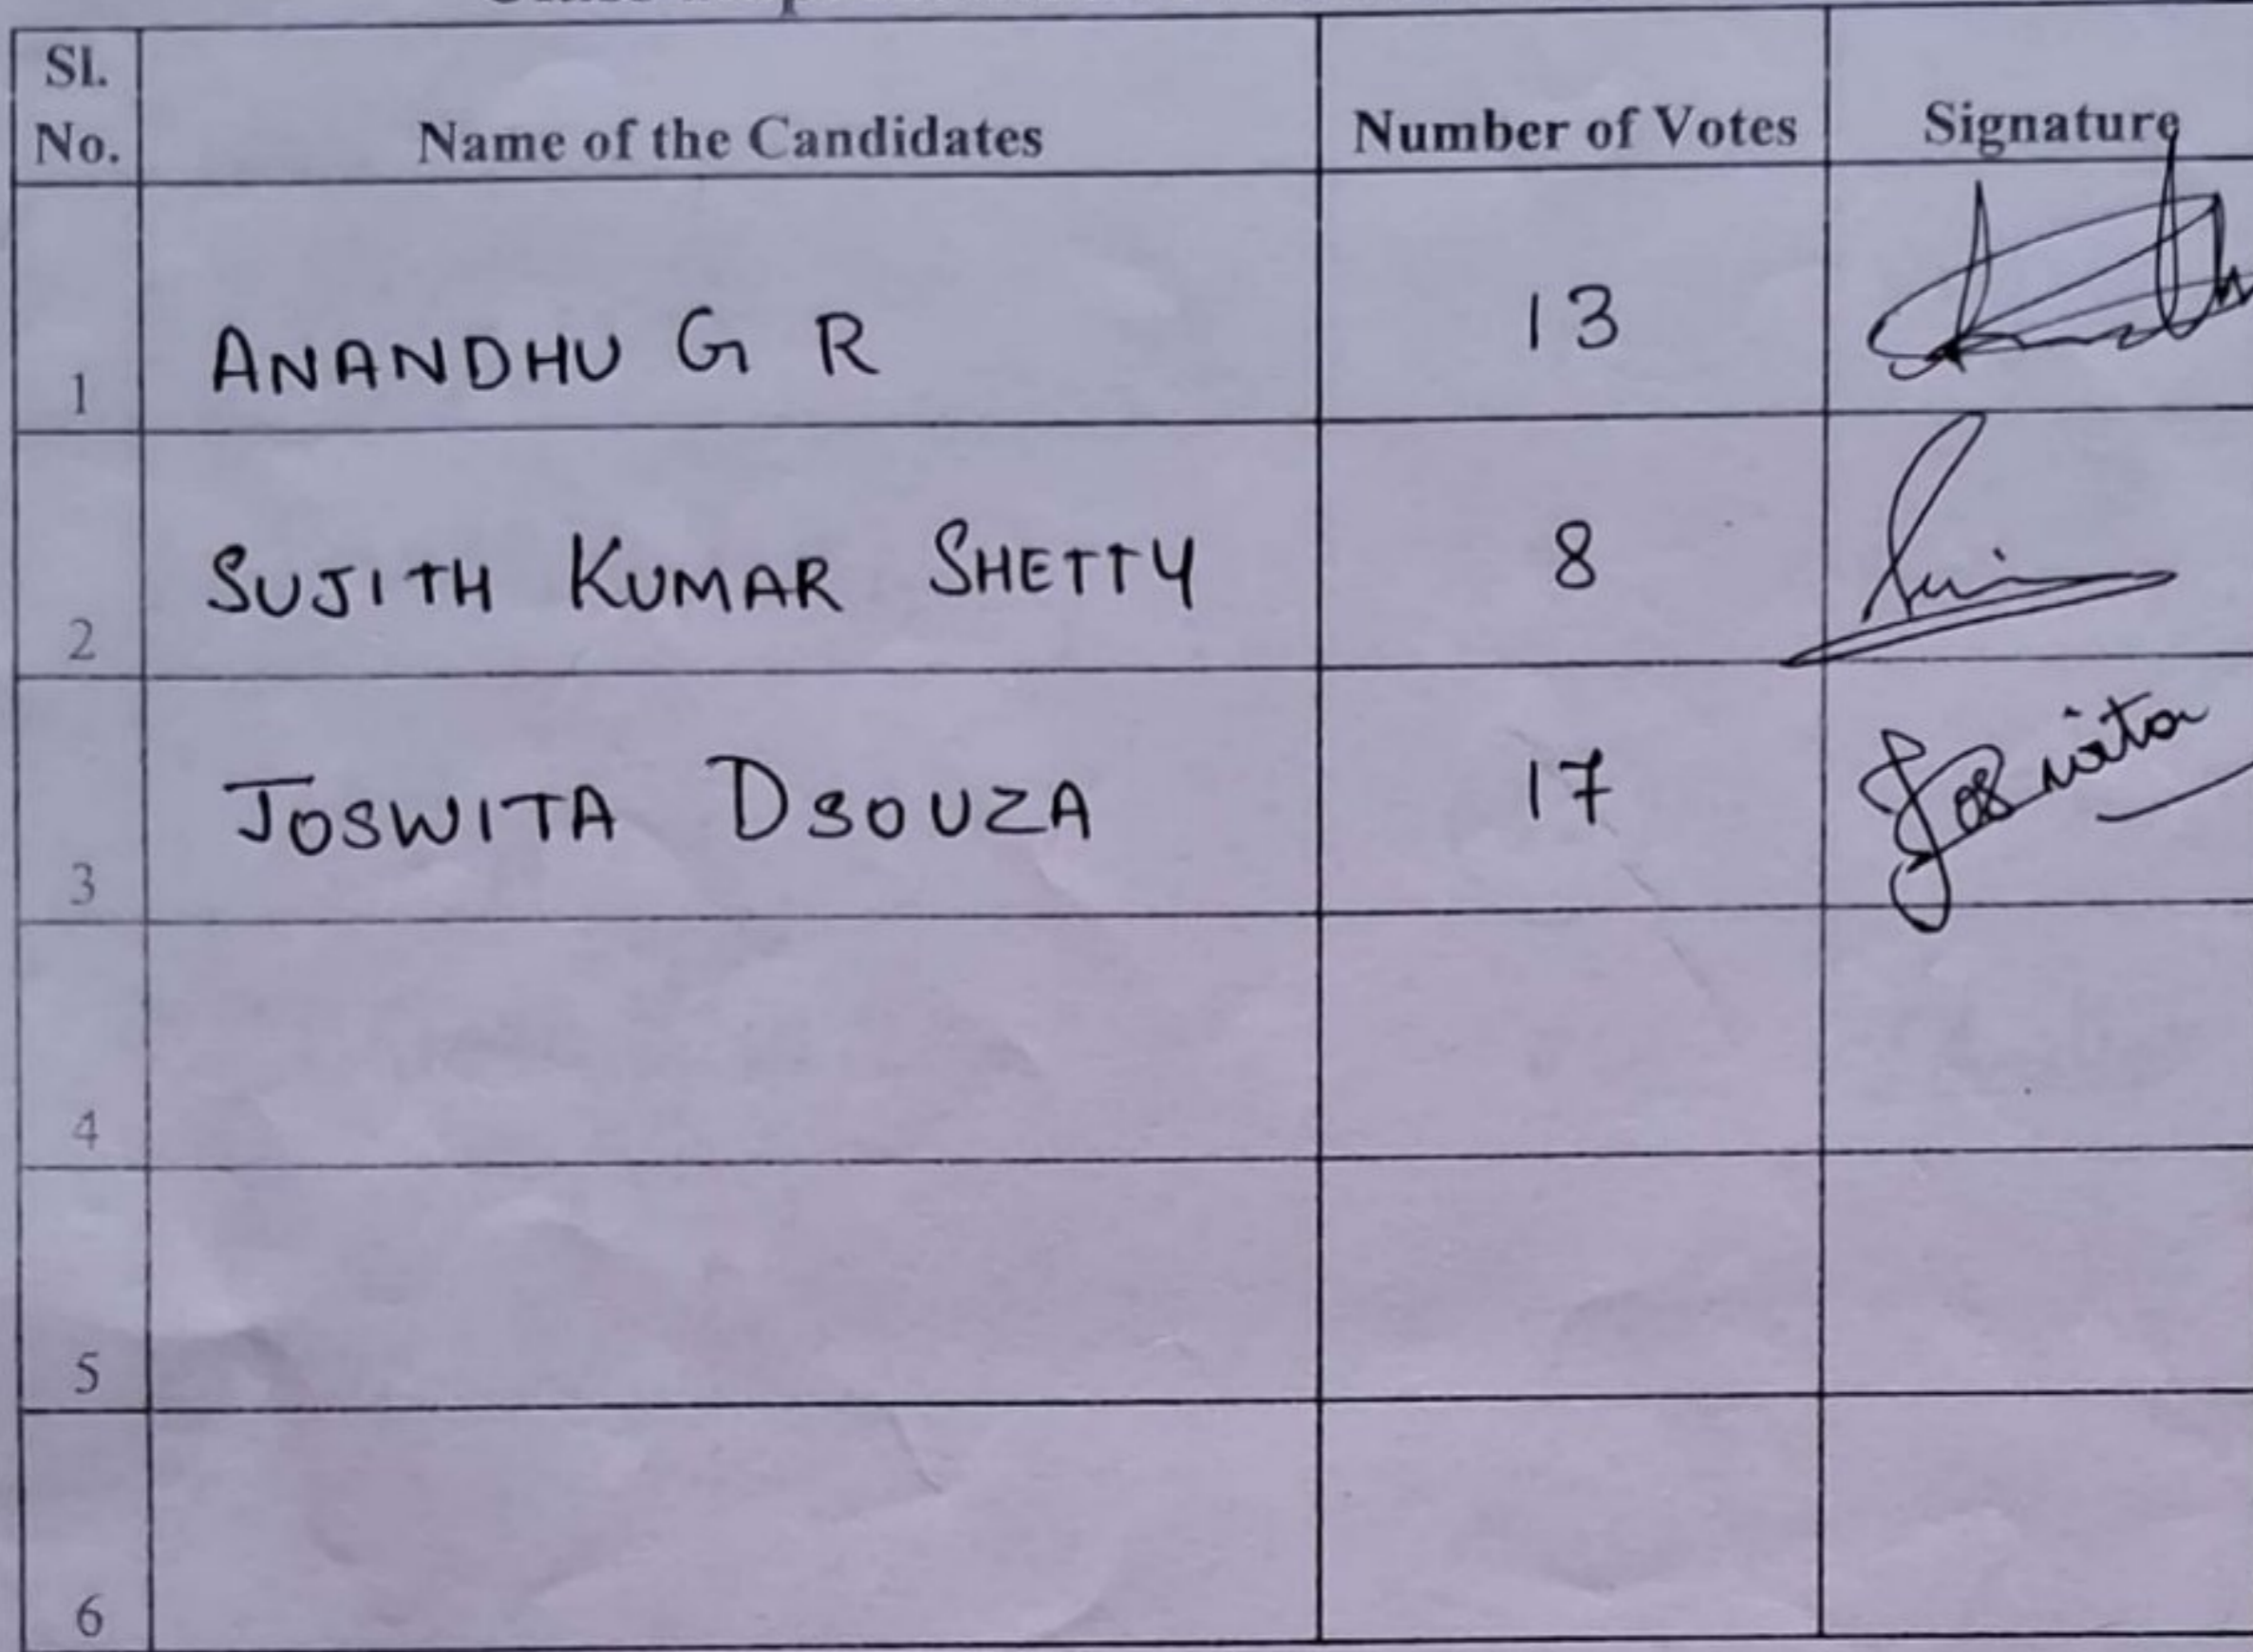 Sl.
No. Name of the Candidates Number of Votes Signature
1 ANANDHU G R 13
2 SUJITH KUMAR SHETTY 8
3 JOSWITA DSOUZA 17 Joswita
4
5
6